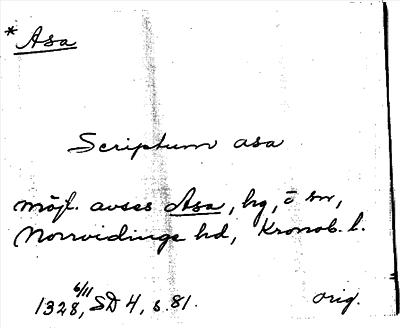 * Asa
Scriptum asa
möjl. avses Asa, hg, ö sn,
Norrvidinge hd, Kronob. l.
6/11
1328, SD 4, s. 81. orig.